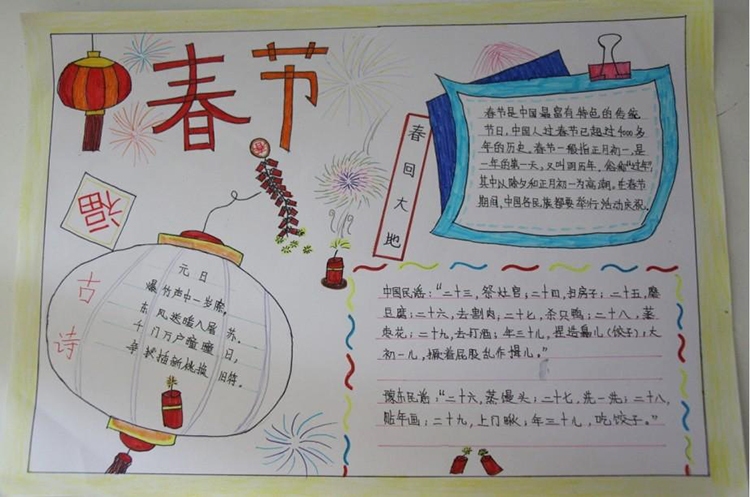 春节
福
春回大地
春节是中国最富有特色的传统
节日,中国人过春节已超过4000多
年的历史。春节一般指正月初一,是
一年的第一天,又叫阴历年,俗称“过年”。
其中以除夕和正月初一为高潮。在春节
期间,中国各民族都要举行活动庆祝。
古诗
元日
爆竹声中一岁除,
东风送暖入屠苏.
千门万户曈曈日,
争把新桃换旧符.
中国民谣:“二十三,祭灶官;二十四,扫房子;二十五,磨
豆腐;二十六,去割肉;二十七,杀只鸭;二十八,蒸
枣花;二十九,去打酒;年三十儿,捏造鼻儿(饺子);大
初一儿,撅着屁股乱作揖儿。”
豫东民谣:“二十六,蒸馒头;二十七,洗一洗;二十八,
贴年画;二十九,上门瞅;年三十儿,吃饺子。”